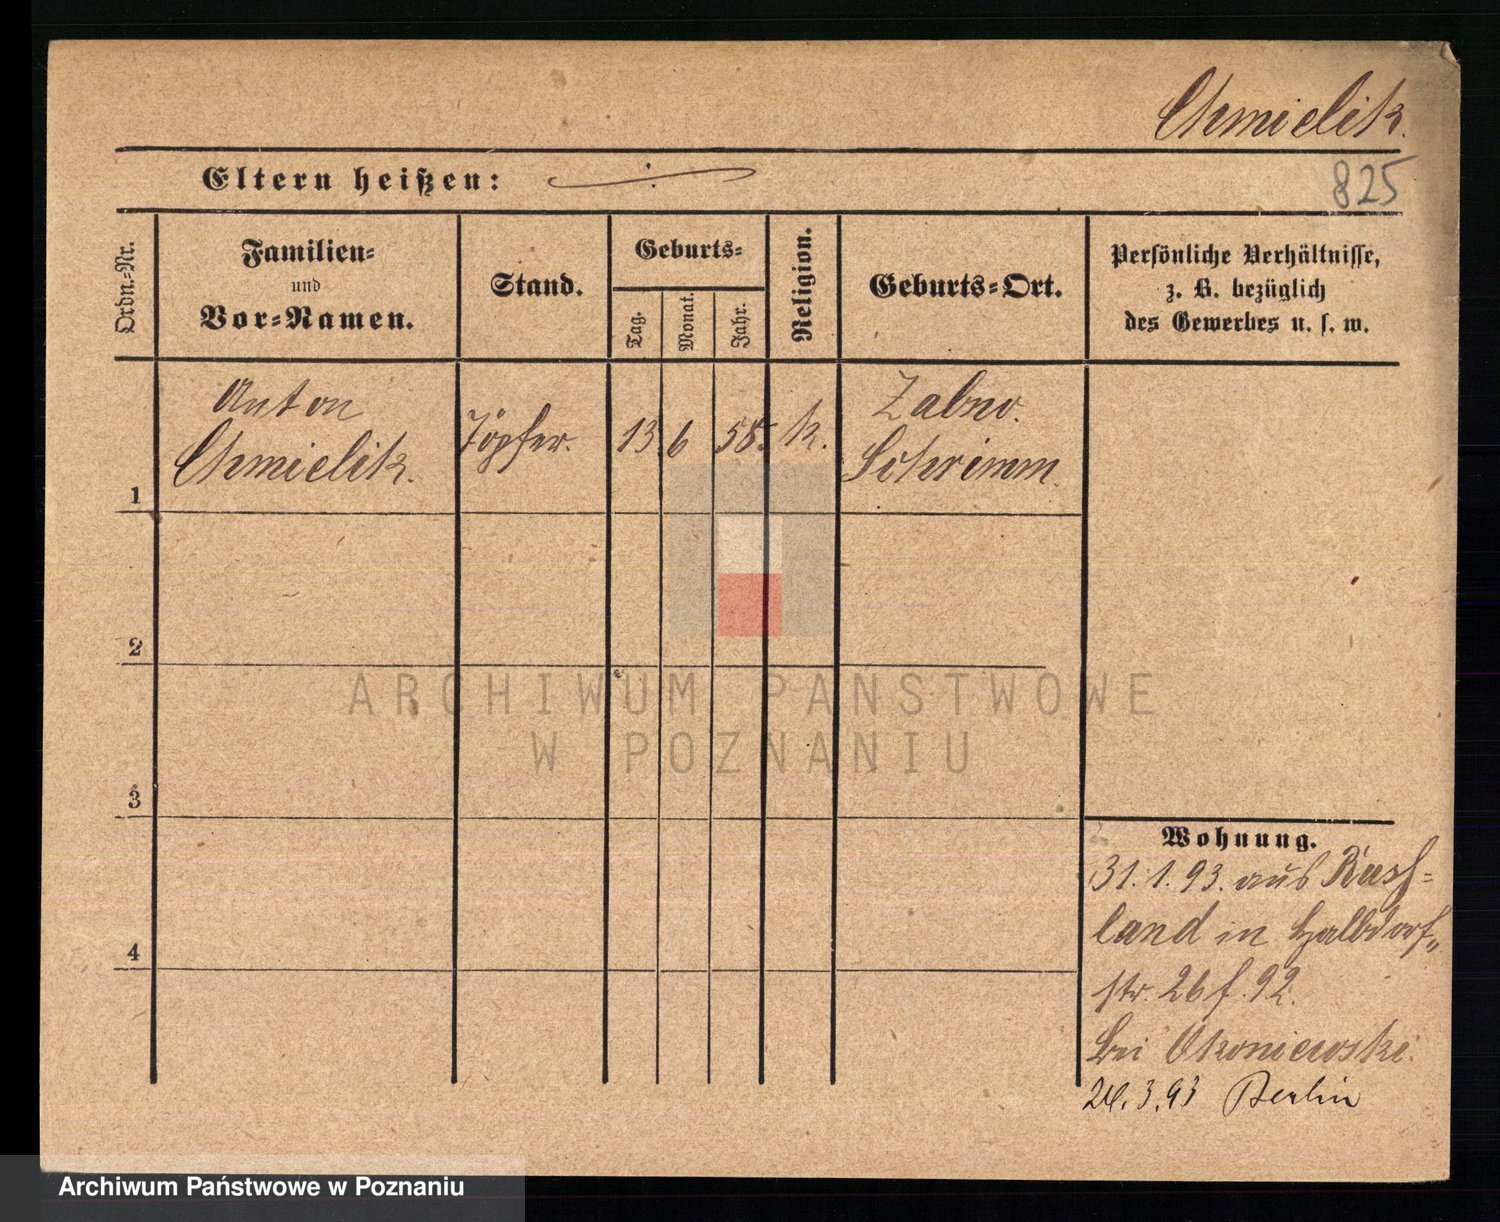 Chmielik.
Eltern heißen:
825
Ordn.=Nr.
Familien=
und
Vor=Namen.
Stand.
Geburts=
Tag.
Monat.
Jahr.
Religion.
Geburts=Ort.
Persönliche Verhältnisse,
z. B. bezüglich
des Gewerbes u. s. w.
1
Anton
Chmielik.
Töpfer.
13
6
58.
k.
Zabno.
Schrimm.
2
ARCHIWUM PAŃSTWOWE
W POZNANIU
3
4
Wohnung.
31.1.93. aus Russ=
land in Halbdorf„
str. 26 f. 92.
bei Okoniewski.
24.3.93 Berlin
Archiwum Państwowe w Poznaniu